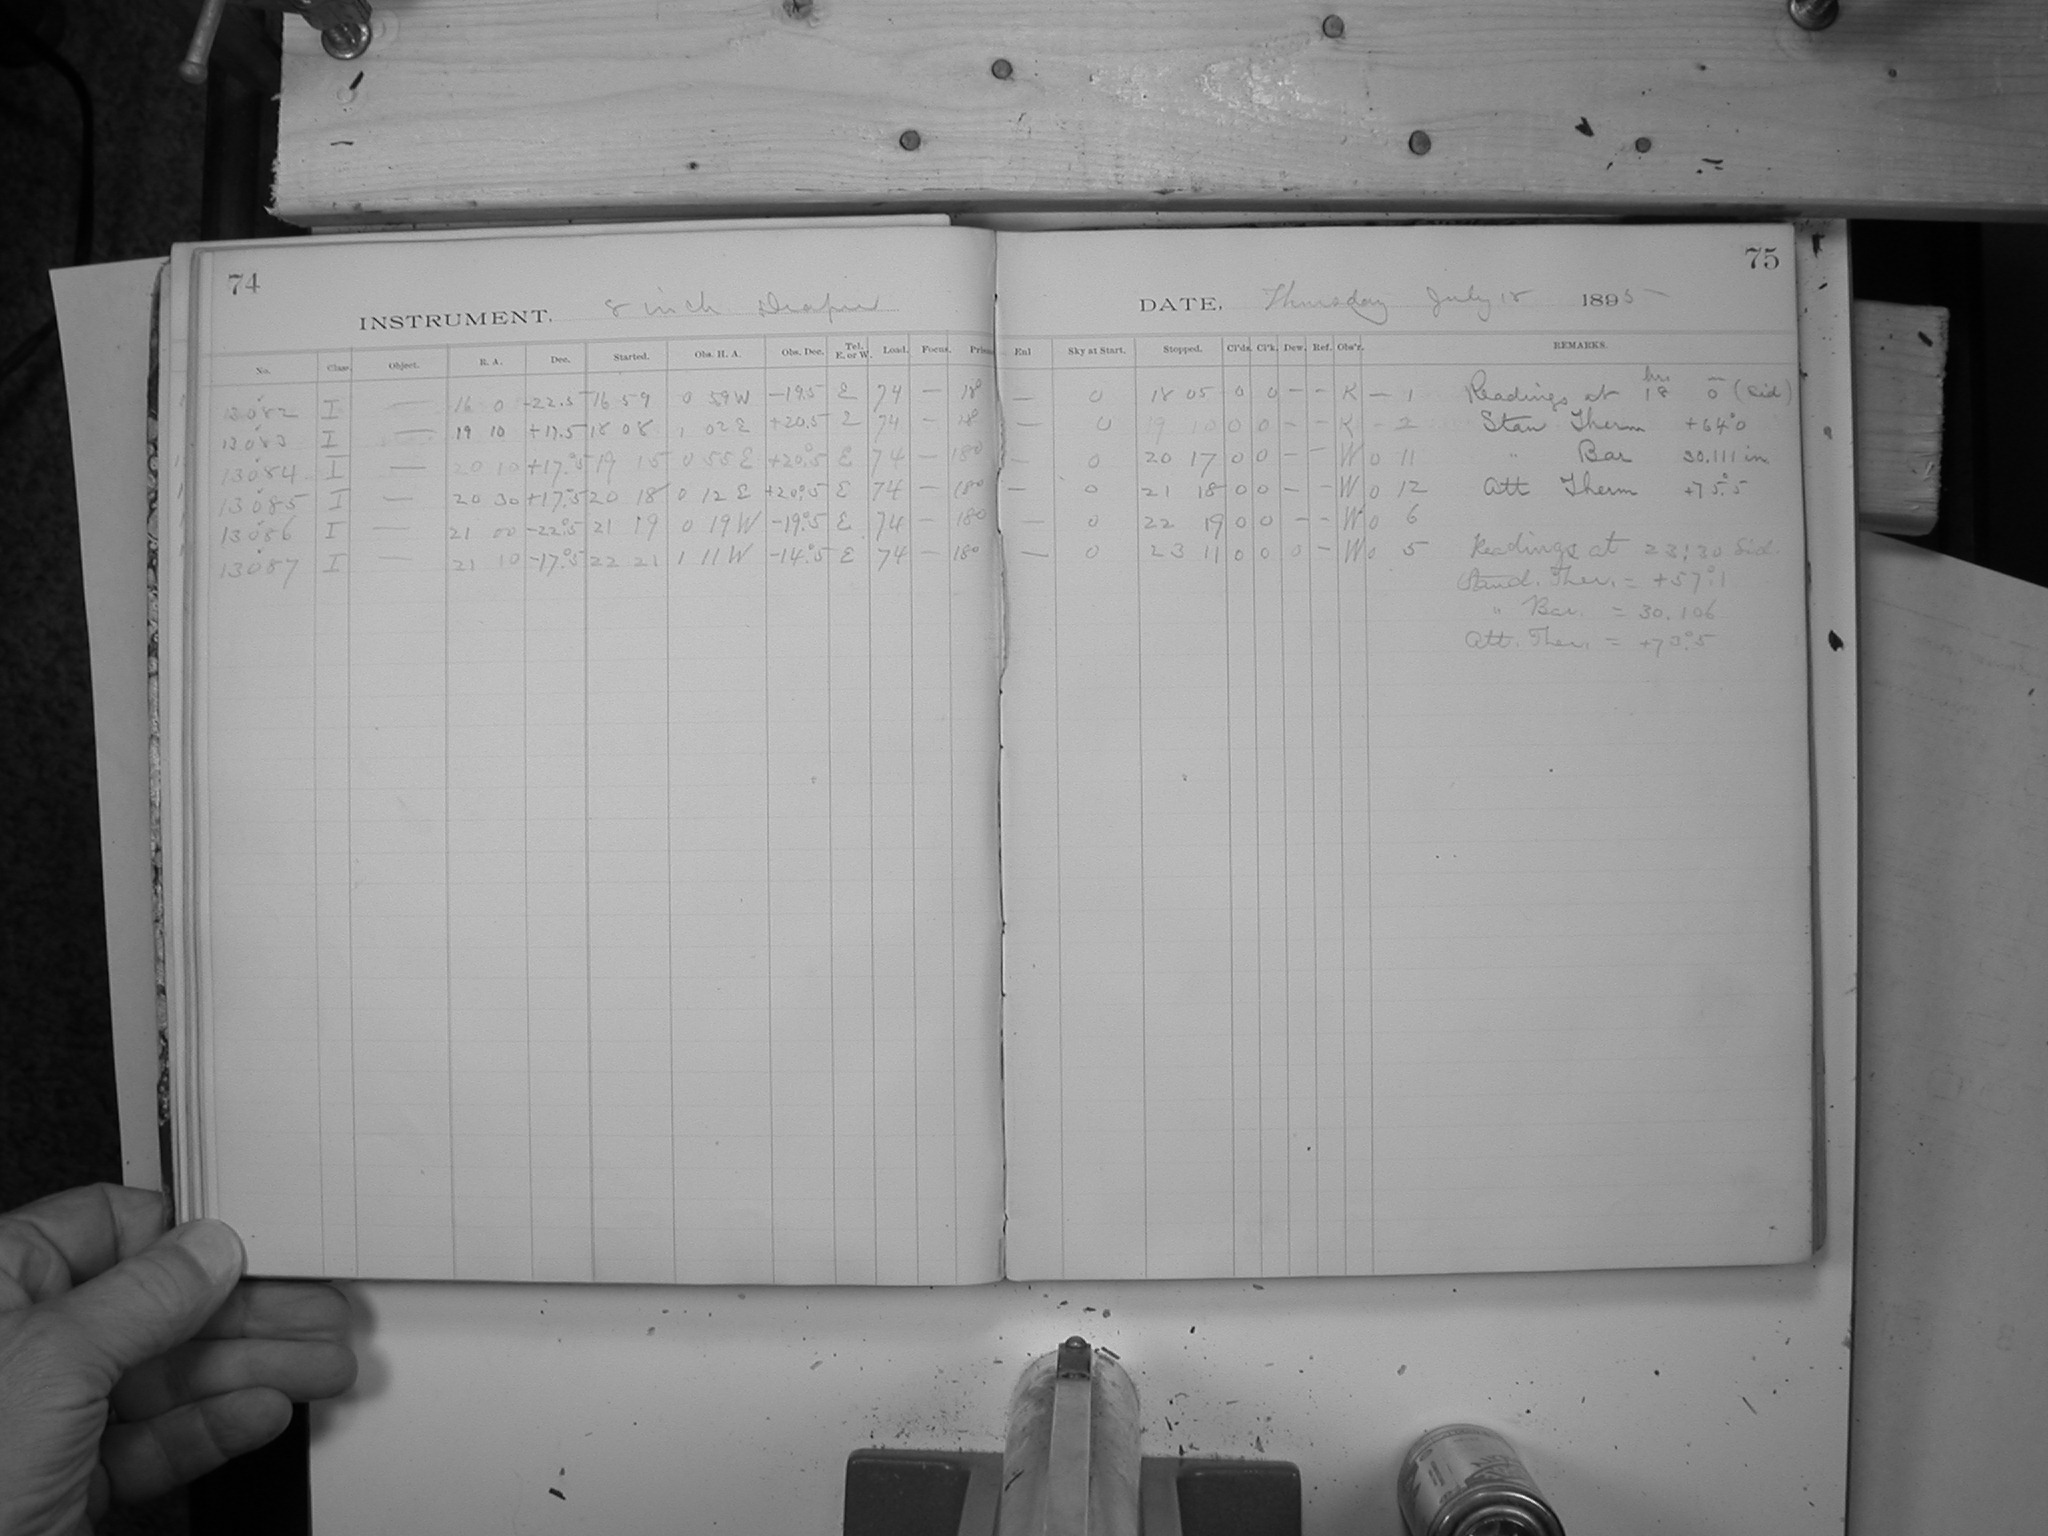 74
INSTRUMENT. 8 inch Draper
No. Class. Object. R. A. Dec. Started. Obs. H. A. Obs. Dec. Tel. E. or W. Load. Focus.
13082 I — 16 0 -22.5 16 59 0 59 W -19.5 E 74 — 18
13083 I — 19 10 +17.5 18 08 1 02 E +20.5 E 74 — 180
13084 I — 20 10 +17°.5 19 15 0 55 E +20°.5 E 74 — 180
13085 I — 20 30 +17°.5 20 18 0 12 E +20°.5 E 74 — 180
13086 I — 21 00 -22°.5 21 19 0 19 W -19°.5 E 74 — 180
13087 I — 21 10 -17°.5 22 21 1 11 W -14°.5 E 74 — 180
75
DATE, Thursday July 18 1895
Enl Sky at Start. Stopped. Cl'ds. Cl'k. Dew. Ref. Obs'r. REMARKS.
— 0 18 05 0 0 — — K — 1 Readings at 18 hrs 0 — (Sid)
— 0 19 10 0 0 — — K — 2 Stan Therm +64°0
— 0 20 17 0 0 — — W 0 11 " Bar 30.111 in.
— 0 21 18 0 0 — — W 0 12 Att Therm +75°.5
— 0 22 19 0 0 — — W 0 6
— 0 23 11 0 0 0 — W 0 5 Readings at 23:30 Sid.
Stand. Ther. = +57°.1
" Bar. = 30.106
Att. Ther. = +73°.5